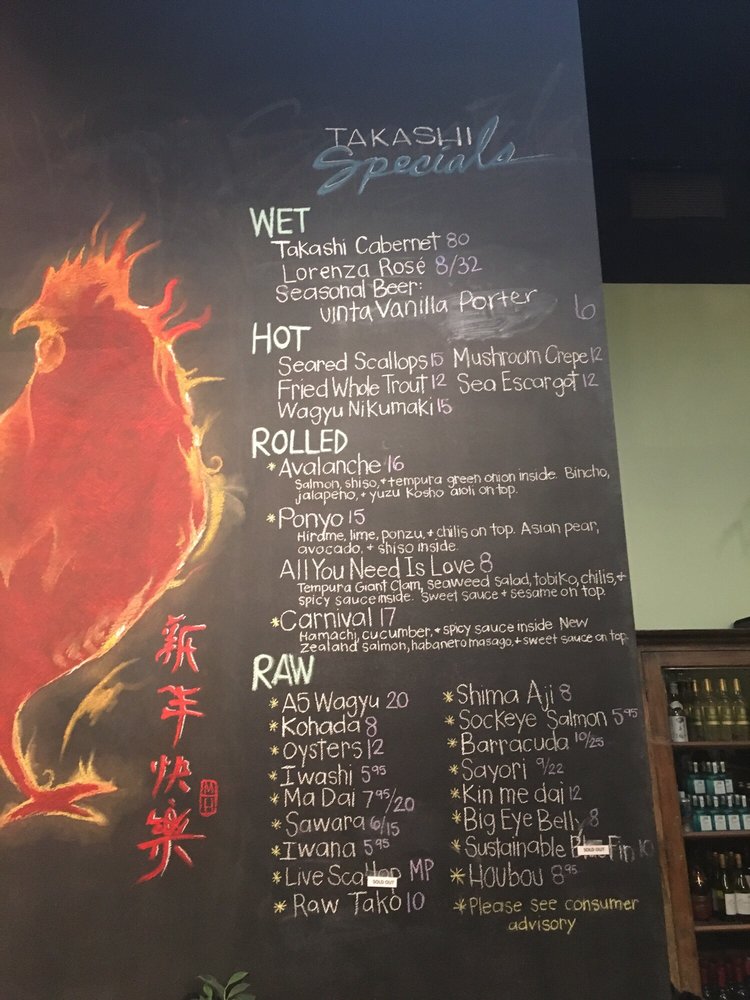 TAKASHI
Specials
WET
Takashi Cabernet 80
Lorenza Rosé 8/32
Seasonal Beer:
uinta Vanilla Porter 6
HOT
Seared Scallops 15 Mushroom Crepe 12
Fried Whole Trout 12 Sea Escargot 12
Wagyu Nikumaki 15
ROLLED
*Avalanche 16
Salmon, shiso, + tempura green onion inside. Bincho,
jalapeño, + yuzu kosho aioli on top.
*Ponyo 15
Hirame, lime, ponzu, + chilis on top. Asian pear,
avocado, + shiso inside.
All You Need Is Love 8
Tempura Giant Clam, seaweed salad, tobiko, chilis, +
spicy sauce inside. Sweet sauce + sesame on top.
*Carnival 17
Hamachi, cucumber, + spicy sauce inside New
Zealand salmon, habanero masago, + sweet sauce on top.
RAW
*A5 Wagyu 20
*Kohada 8
*Oysters 12
*Iwashi 5.95
*Ma Dai 7.95/20
*Sawara 6/15
*Iwana 5.95
*Live Scallop MP
SOLD OUT
*Raw Tako 10
*Shima Aji 8
*Sockeye Salmon 5.95
*Barracuda 10/25
*Sayori 9/22
*Kin me dai 12
*Big Eye Belly 8
*Sustainable Blue Fin 10
SOLD OUT
*Houbou 8.95
*Please see consumer
advisory
新年快樂
MH